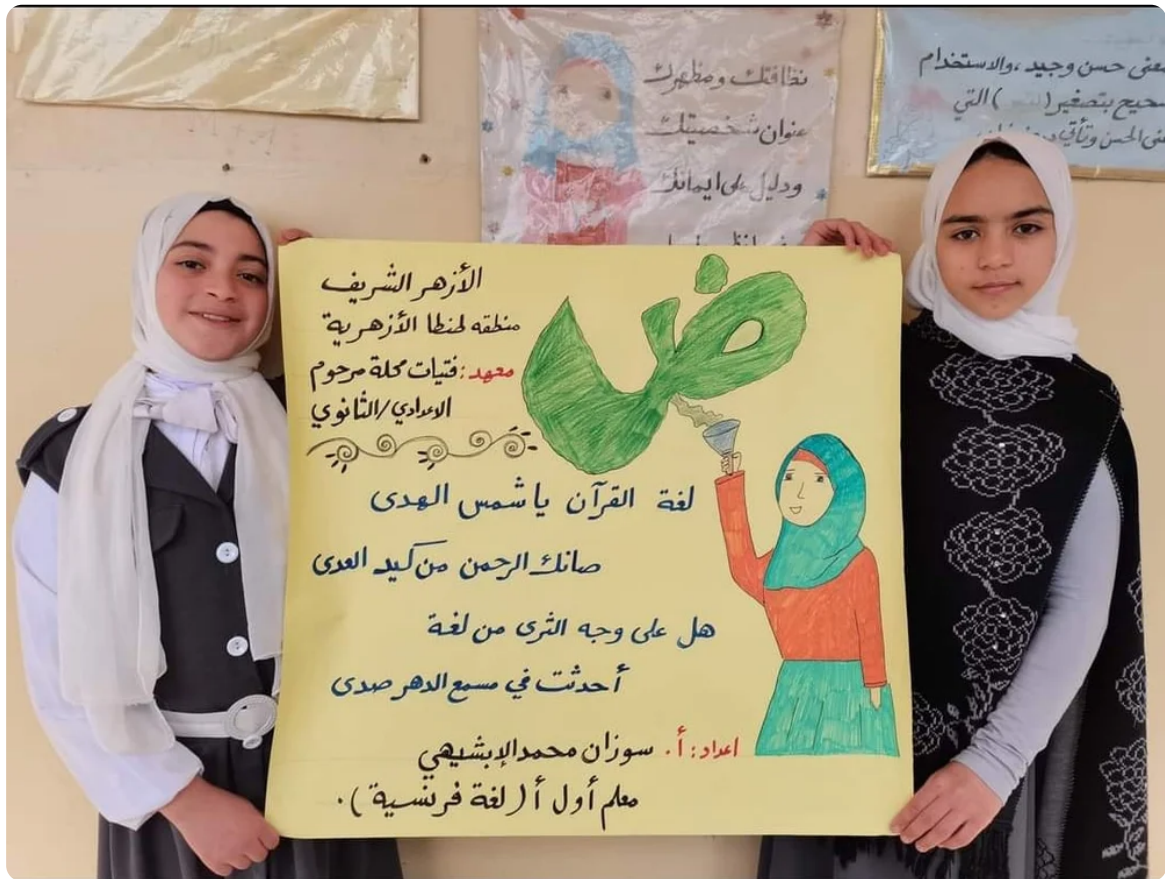 نظافتك ومظهرك
عنوان شخصيتك
ودليل على ايمانك
معنى حسن وجيد، والاستخدام
بتصغير ( ) التي
وتأتي
الأزهر الشريف
منطقه طنطا الأزهرية
معهد: فتيات محلة مرحوم
الاعدادي/الثانوي
ض
لغة القرآن يا شمس الهدى
صانك الرحمن من كيد العدى
هل على وجه الثرى من لغة
أحدثت في مسمع الدهر صدى
اعداد: أ. سوزان محمد الإبشيهي
معلم أول أ (لغة فرنسية).